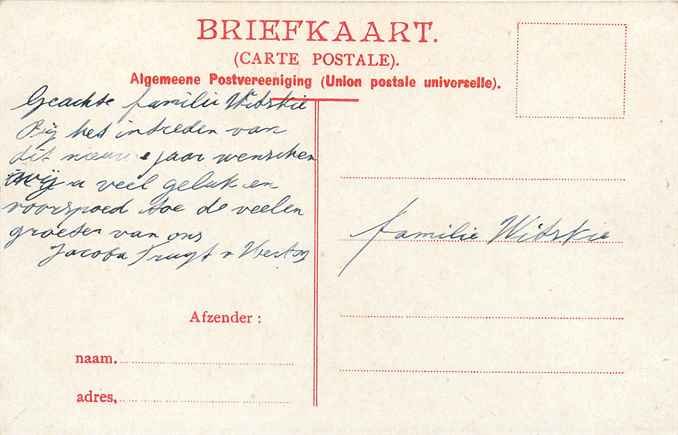 BRIEFKAART.
(CARTE POSTALE).
Algemeene Postvereeniging (Union postale universelle).
Geachte familie Witskie
Bij het intreden van
dit nieuwe jaar wenschen
wij u veel geluk en
voorspoed toe de veelen
groeten van ons
Jacoba
familie Witskie
Afzender:
naam.
adres,